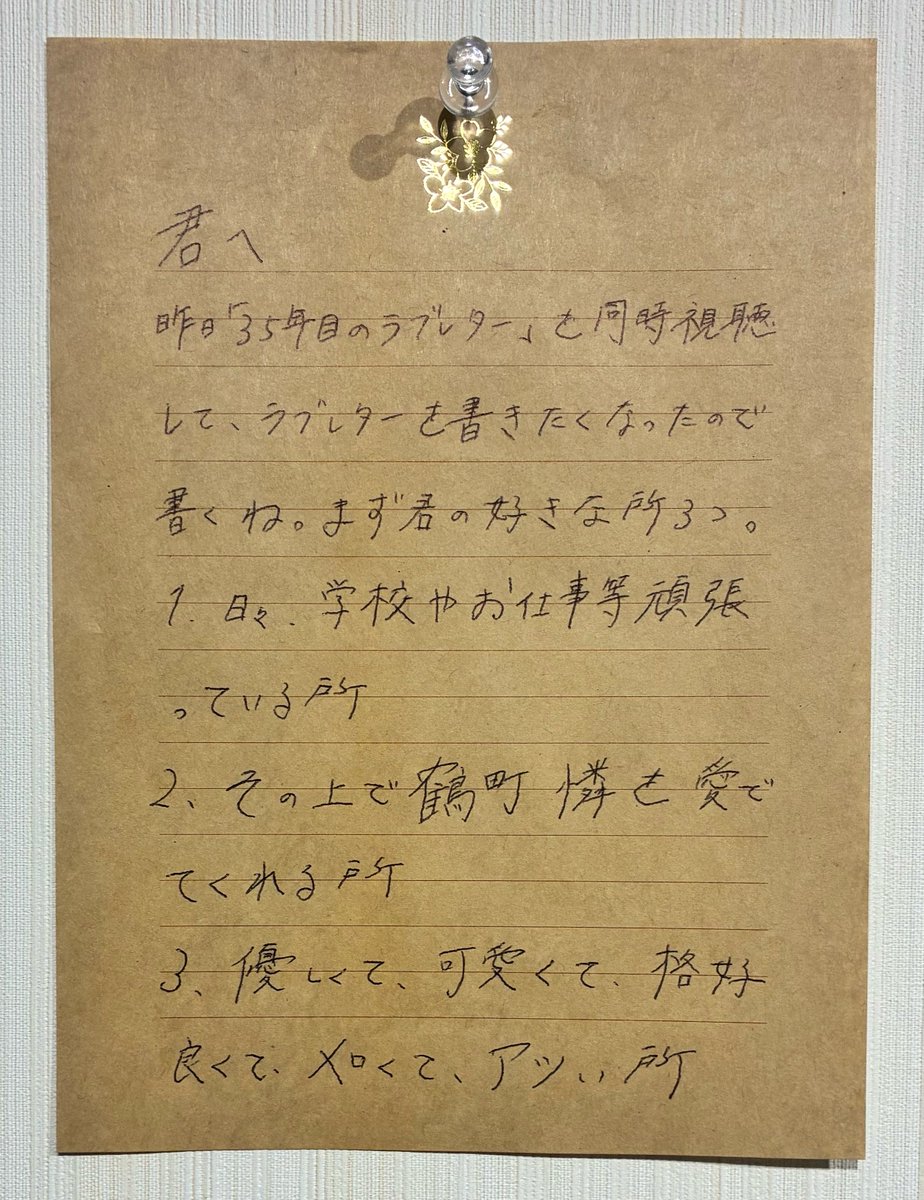 君へ
昨日「35年目のラブレター」を同時視聴
して、ラブレターを書きたくなったので
書くね。まず君の好きな所3つ。
1. 日々、学校やお仕事等頑張
っている所
2、その上で鶴町 憐を愛で
てくれる所
3、優しくて、可愛くて、格好
良くて、メロくて、アツい所